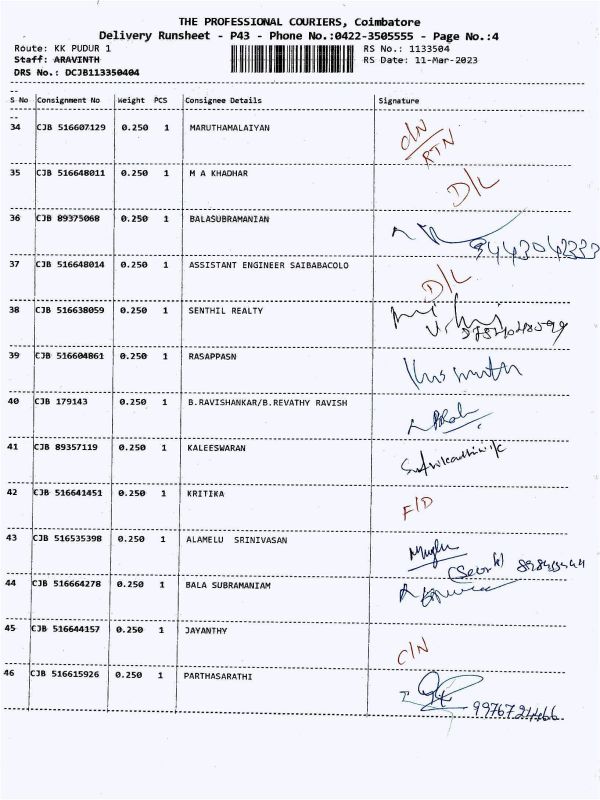 THE PROFESSIONAL COURIERS, Coimbatore
Delivery Runsheet - P43 - Phone No.:0422-3505555 - Page No.:4
Route: KK PUDUR 1 RS No.: 1133504
Staff: ARAVINTH RS Date: 11-Mar-2023
DRS No.: DCJB113350404
S No Consignment No Weight PCS Consignee Details Signature
34 CJB 516607129 0.250 1 MARUTHAMALAIYAN O/N
RTN
35 CJB 516648011 0.250 1 M A KHADHAR D/L
36 CJB 89375068 0.250 1 BALASUBRAMANIAN
37 CJB 516648014 0.250 1 ASSISTANT ENGINEER SAIBABACOLO D/L
38 CJB 516638059 0.250 1 SENTHIL REALTY
39 CJB 516604861 0.250 1 RASAPPASN
40 CJB 179143 0.250 1 B.RAVISHANKAR/B.REVATHY RAVISH
41 CJB 89357119 0.250 1 KALEESWARAN
42 CJB 516641451 0.250 1 KRITIKA F/D
43 CJB 516535398 0.250 1 ALAMELU SRINIVASAN
44 CJB 516664278 0.250 1 BALA SUBRAMANIAM
45 CJB 516644157 0.250 1 JAYANTHY C/N
46 CJB 516615926 0.250 1 PARTHASARATHI